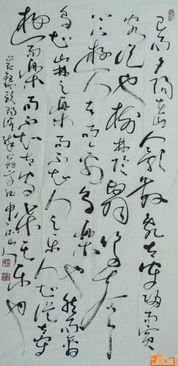 已而夕阳在山人影散乱太守归而宾
客从也树林阴翳鸣声上下
游人去而禽鸟乐也然而禽
鸟知山林之乐而不知人之乐人知从太守
游而乐而不知太守之乐其乐也